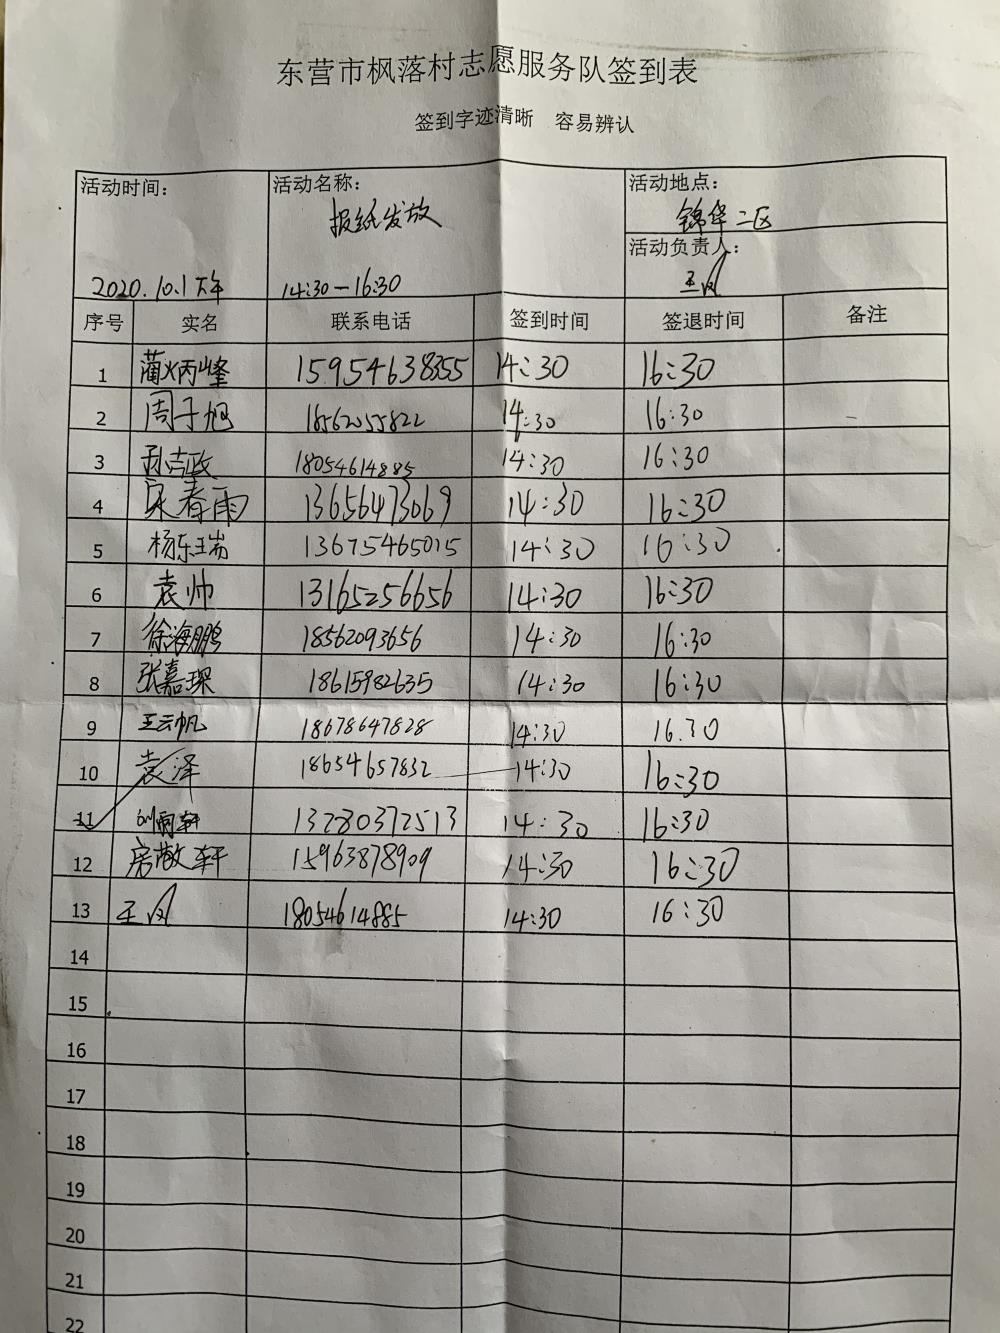 东营市枫落村志愿服务队签到表
签到字迹清晰 容易辨认
活动时间： 活动名称： 活动地点：
报纸发放 锦华二区
活动负责人：
2020.10.1下午 14:30—16:30 王凤
序号 实名 联系电话 签到时间 签退时间 备注
1 蔺炳峰 15954638355 14:30 16:30
2 周子旭 18562055822 14:30 16:30
3 孙吉政 18054614885 14:30 16:30
4 宋春雨 13656473069 14:30 16:30
5 杨东瑞 13675465015 14:30 16:30
6 袁帅 13165256656 14:30 16:30
7 徐海鹏 18562093656 14:30 16:30
8 张嘉琛 18615982635 14:30 16:30
9 王云帆 18678647828 14:30 16.30
10 袁泽 18654657832 14:30 16:30
11 刘雨轩 13280372513 14:30 16:30
12 房敬轩 15963878909 14:30 16:30
13 王凤 18054614885 14:30 16:30
14
15
16
17
18
19
20
21
22